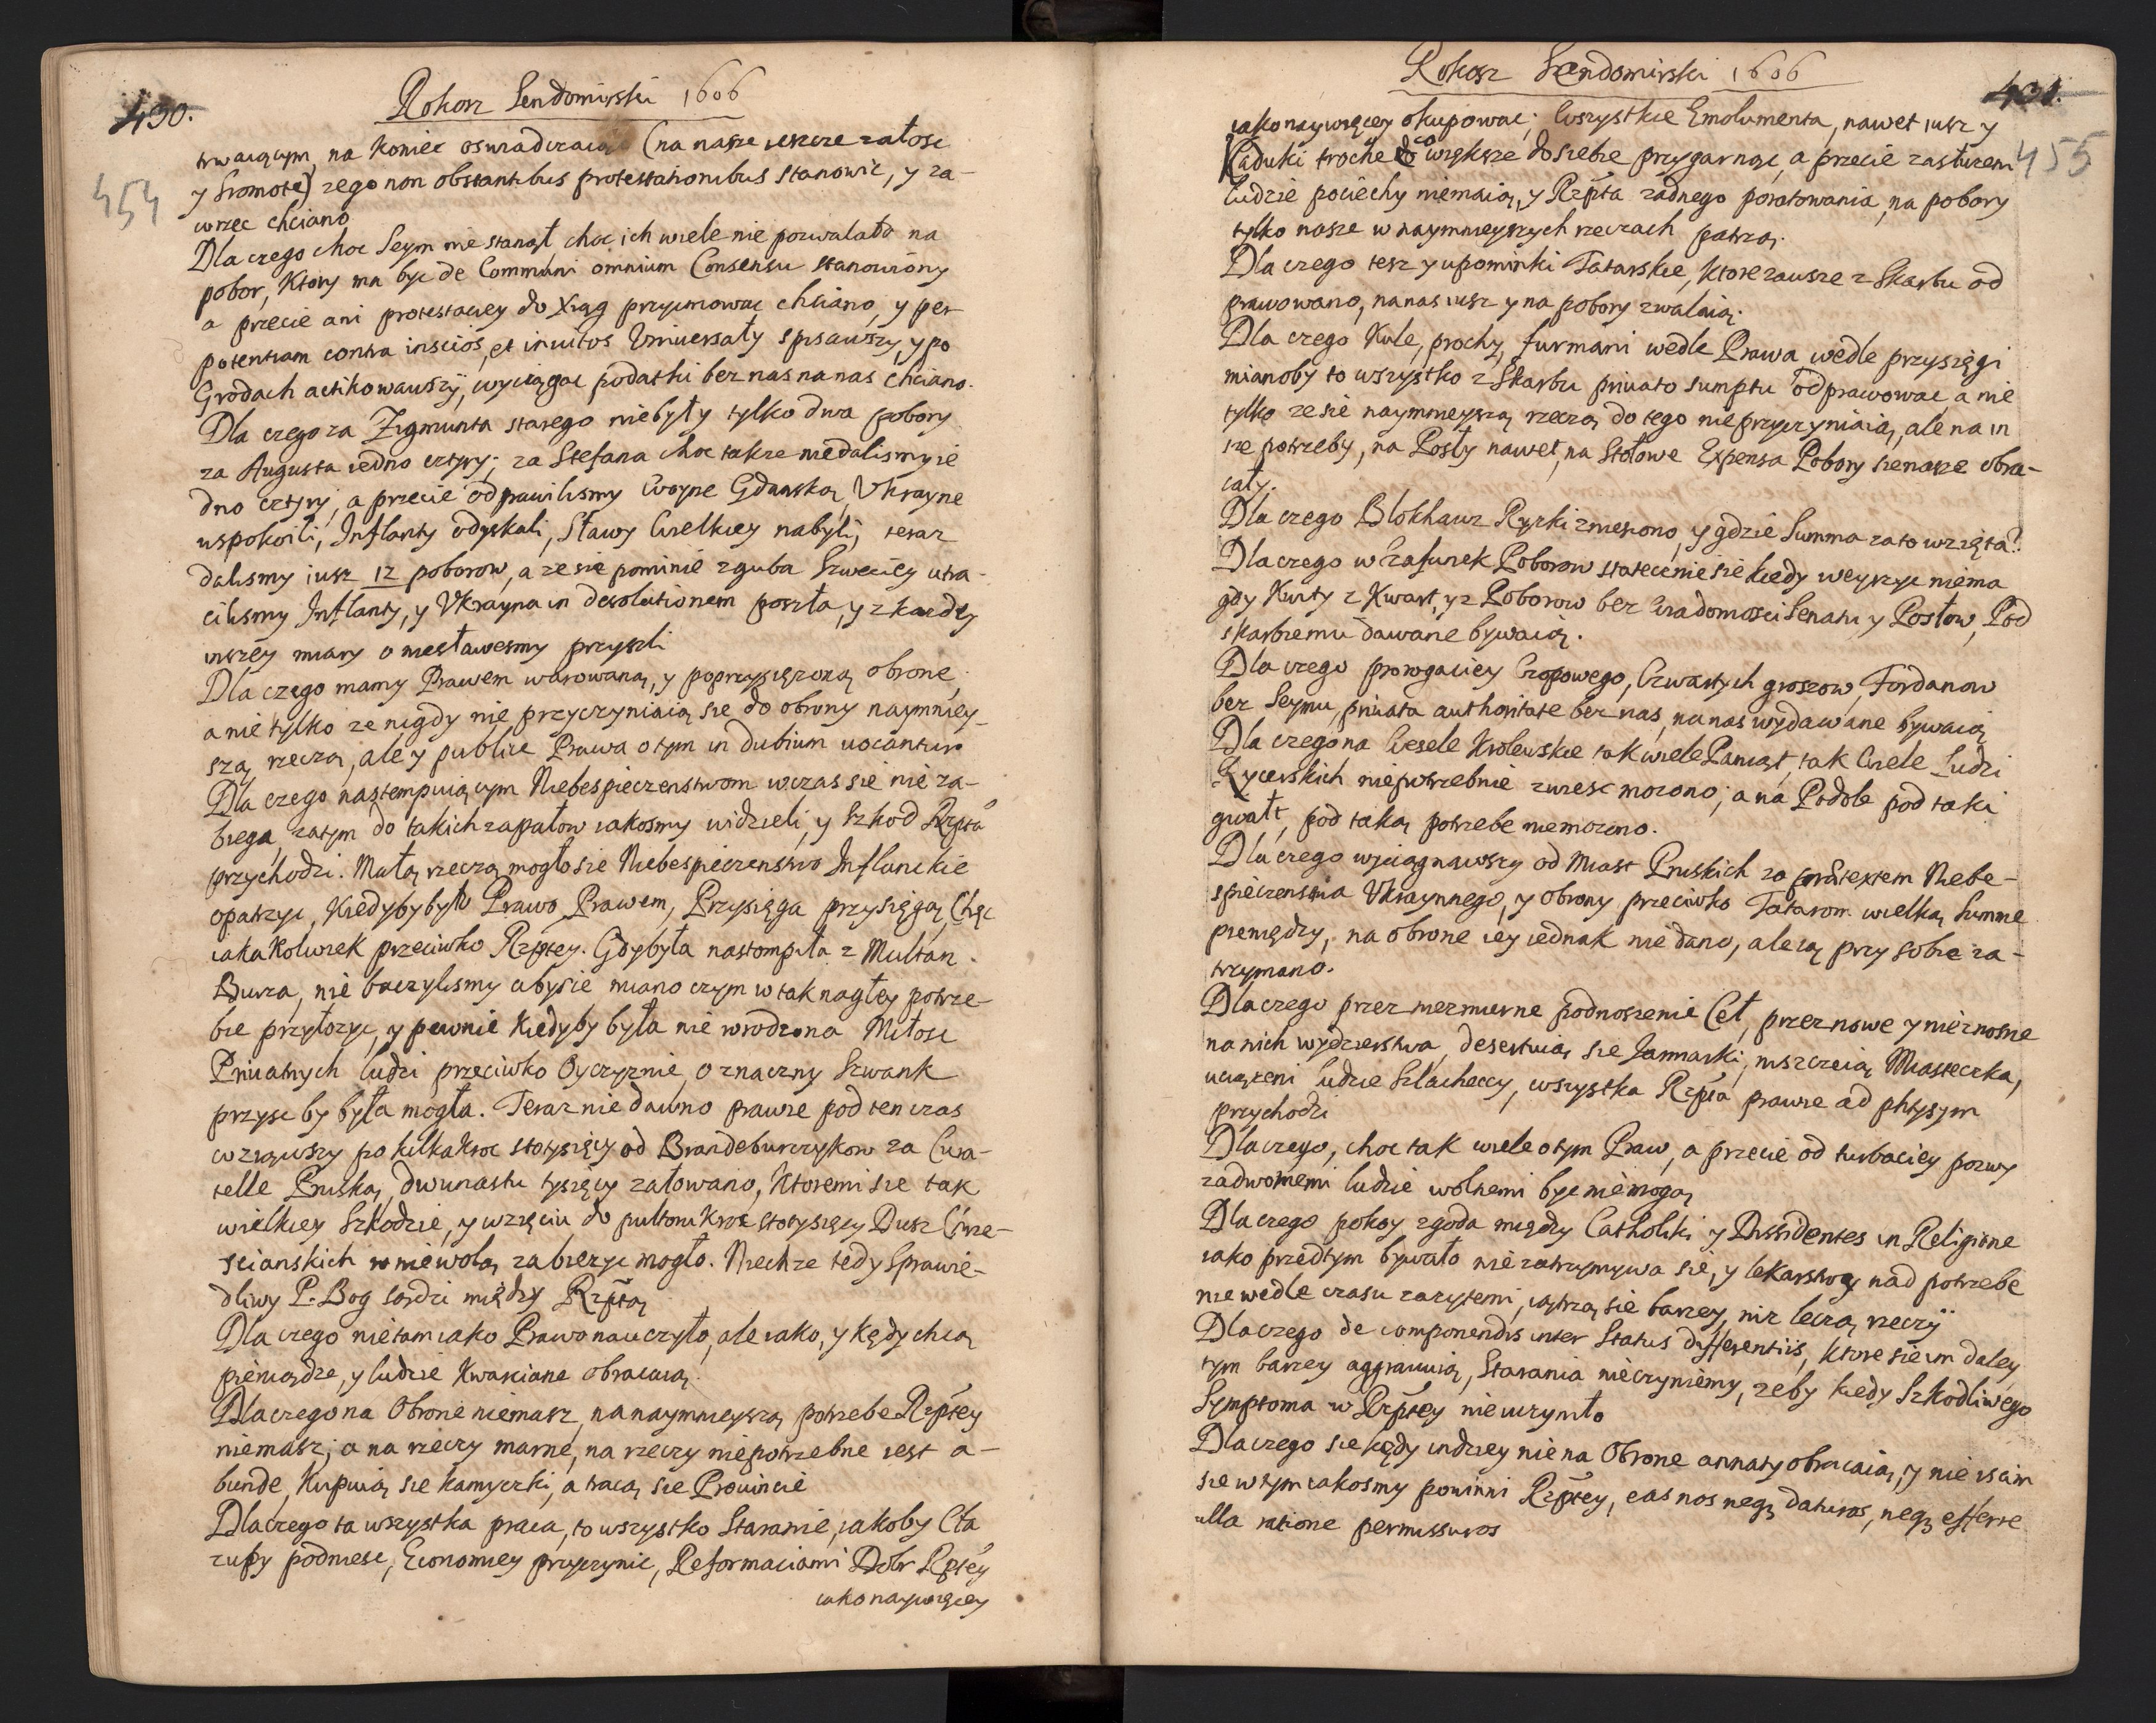 490.
Rokosz Sendomirski 1606
454
trwaiącym, na koniec oswiadczaiąc (na nasze jeszcze załosc
y sromotę) zego non obstantibus protestationibus stanowic, y za-
wrzec chciano
Dla czego choc Seym nie stanął choc ich wiele nie pozwalało na
pobor, Ktory ma byc de Communi omnium Consensu stanowiony
a przecie ani protestaciey do Xiąg przyimowac chciano, y per
potentiam contra inscios, et inuitos Vniuersały spisawszy, y po
Grodach actikowawszy, wyciągac podatki bez nas na nas chciano.
Dla czego za Zigmunta starego nie były tylko dwa pobory
za Augusta iedno cztyry; za Stefana choc takze niedalismy ie
dno cztyry, a przecie odprawilismy Woyne Gdanską, Vkrayne
uspokoili, Inflanty odyskali, Sławy Wielkiey nabyli, teraz
dalismy iusz 12 poborow, a ze sie pominie zguba Szweciey utra-
cilismy Inflanty, y Vkrayna in desolutionem poszła, y z kazdey
inszey miary o niesławesmy przyszli
Dla czego mamy Prawem warowaną, y poprzysięzoną obrone,
a nie tylko ze nigdy nie przyczyniaią sie do obrony naymniey-
szą rzeczą, ale y publice Prawa o tym in dubium uocantur
Dla czego nastempuiącym Niebespieczenstwom wczas sie nie za-
biega, zatym do takich zapałow iakosmy widzieli, y szkod Rzpta
przychodzi. Małą rzeczą mogło sie Niebespieczenstwo Inflanckie
opatrzyc, Kiedyby było Prawo Prawem, Przysięga przysięgą, Chęc
iaka Kolwiek przeciwko Rzptey. Gdy była nastompiła z Multan
Burza, nie baczylismy aby sie miano czym w tak nagłey potrze-
bie przyłozyc, y pewnie kiedyby była nie wrodzona Miłosc
Priuatnych ludzi przeciwko Oyczyznie, o znaczny Szwank
przysc by była mogła. Teraz nie dawno prawie pod ten czas
wziąwszy po kilkakroc stotysięcy od Brandeburczykow za Cura-
telle Pruską, dwunastu tysięcy załowano, Ktoremi sie tak
wielkiey Szkodzie, y wzięciu do pultorukroc stotysięcy Dusz Chrze-
scianskich w niewolą zabiezyc mogło. Niechze tedy Sprawie-
dliwy P. Bog sądzi między Rzptą
Dla czego nie tam iako Prawo nauczyło, ale iako, y kędy chcą
pieniądze, y ludzie Kwarciane obracaią.
Dla czego na Obrone niemasz, na naymnieyszą potrzebe Rzptey
niemasz; a na rzeczy marne, na rzeczy niepotrzebne iest a-
bunde, Kupuią sie kamyczki, a tracą sie Prouincie
Dla czego ta wszystka praca, to wszystko Staranie, iakoby Cła
zupy podniesc, Economiey przyczynic, Reformaciami Dobr Rzptey
iako naywięcey
Rokosz Sendomirski 1606
491.
455
iako naywięcey okupowac; Wszystkie Emolumenta, nawet iusz y
Kaduki troche co większe do siebie przygarnąc, a przecie zasłuzeni
ludzie pociechy niemaią, y Rzpta zadnego poratowania, na pobory
tylko nasze w naymnieyszych rzeczach patrzą.
Dla czego tesz y upominki Tatarskie, ktore zawsze z Skarbu od
prawowano, na nas iusz y na pobory zwalaią.
Dla czego Kule, prochy, furmani wedle Prawa wedle przysięgi
mianoby to wszystko z Skarbu priuato sumptu odprawowac, a nie
tylko ze sie naymnieyszą rzeczą do tego nie przyczyniaią, ale na in
sze potrzeby, na Posły nawet, na Stołowe Expensa Pobory sie nasze obra-
cały.
Dla czego Blokhauz Ryzki zniesiono, y gdzie Summa za to wzięta?
Dla czego w Szafunek Poborow statecznie sie kiedy weyrzyc niema
gdy Kwity z Kwart, y z Poborow bez Wiadomosci Senatu y Posłow, Pod
skarbiemu dawane bywaią.
Dla czego prorogaciey Czopowego, Czwartych groszow, Fordanow
bez Seymu, priuata authoritate bez nas, na nas wydawane bywaią
Dla czego na Wesele Krolewskie tak wiele Paniąt, tak Wiele Ludzi
Rycerskich niepotrzebnie zwiesc mozono; a na Podole pod taki
gwałt, pod taką potrzebe niemozono.
Dla czego wyciągnąwszy od Miast Pruskich za praetextem Niebe-
spieczenstwa Vkraynnego, y obrony przeciwko Tatarom wielką Summe
pieniędzy, na obrone iey iednak nie dano, ale ią przy sobie za-
trzymano.
Dla czego przez niezmierne podnoszenie Ceł, przez nowe y nieznosne
na nich wydzierstwa, desertuią sie Jarmarki; niszczeią Miasteczka,
uciązeni ludzie Szlacheccy, wszystka Rzpta prawie ad phtysym
przychodzi
Dla czego, choc tak wiele o tym Praw, a przecie od turbaciey pozwy
zadwornemi ludzie wolnemi byc niemogą
Dla czego pokoy zgoda między Catholiki y Dissidentes in Religione
iako przedtym bywało nie zatrzymywa sie, y lekarstwy nad potrzebe
nie wedle czasu zazytemi, iątrzą sie barziey, niz leczą rzeczy
Dla czego de componendis inter Status differentiis, ktore sie im daley
tym barziey aggrauuią, Starania nieczyniemy, zeby kiedy Szkodliwego
Symptoma w Rzptey nieuczyniło
Dla czego sie kędy indziey nie na Obrone annaty obracaią, y nie iscim
sie w tym iakosmy powinni Rzptey, eas nos neq; daturos, neq; efferre
ulla ratione permissuros